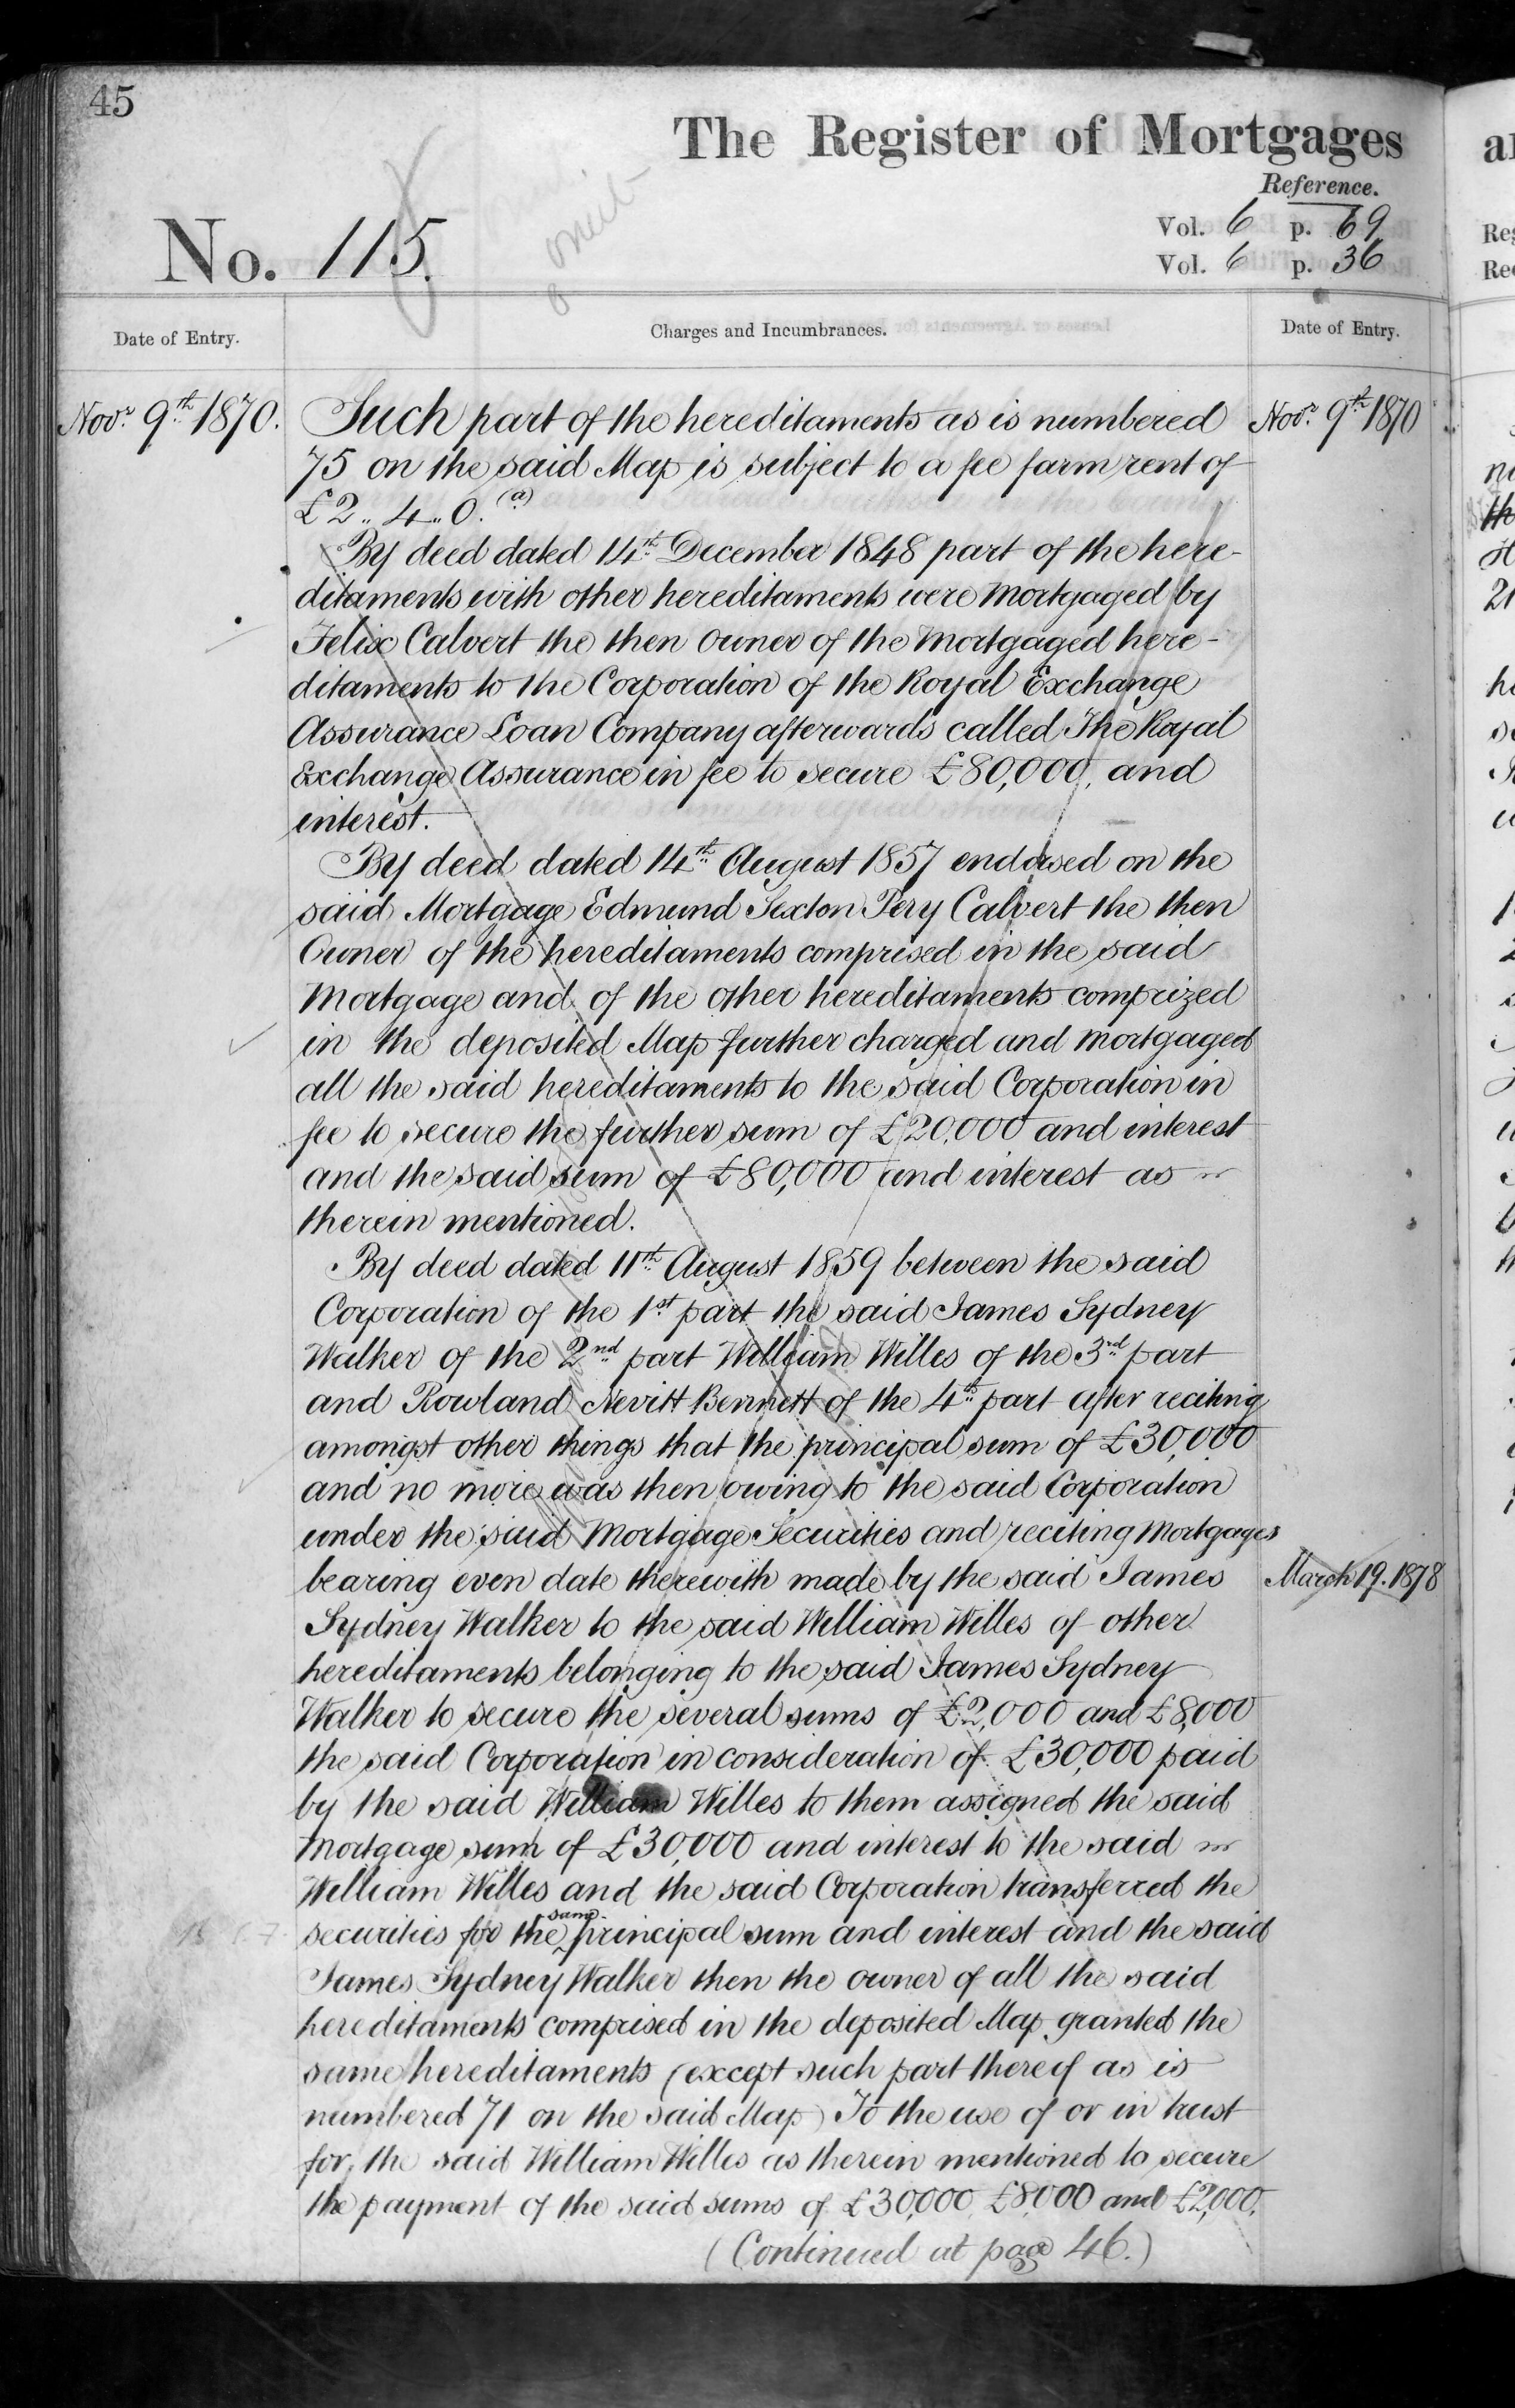 45
The Register of Mortgages
Reference.
No. 115.
omit
Vol. 6 p. 69
Vol. 6 p. 36
Date of Entry.
Charges and Incumbrances.
Date of Entry.
Novr. 9th 1870.
Such part of the hereditaments as is numbered
75 on the said Map is subject to a fee farm rent of
£2..4..0. (a)
By deed dated 14th December 1848 part of the here-
ditaments with other hereditaments were Mortgaged by
Felix Calvert the then Owner of the Mortgaged here-
ditaments to the Corporation of the Royal Exchange
Assurance Loan Company afterwards called The Royal
Exchange Assurance in fee to secure £80,000, and
interest.
By deed dated 14th August 1857 endorsed on the
said Mortgage Edmund Sexton Pery Calvert the then
Owner of the hereditaments comprised in the said
Mortgage and of the other hereditaments comprized
in the deposited Map further charged and mortgaged
all the said hereditaments to the said Corporation in
fee to secure the further sum of £20,000 and interest
and the said sum of £80,000 and interest as
therein mentioned.
By deed dated 11th August 1859 between the said
Corporation of the 1st part the said James Sydney
Walker of the 2nd part William Willes of the 3rd part
and Rowland Nevitt Bennett of the 4th part after reciting
amongst other things that the principal sum of £30,000
and no more was then owing to the said Corporation
under the said Mortgage Securities and reciting Mortgages
bearing even date therewith made by the said James
Sydney Walker to the said William Willes of other
hereditaments belonging to the said James Sydney
Walker to secure the several sums of £2,000 and £8,000
the said Corporation in consideration of £30,000 paid
by the said William Willes to them assigned the said
Mortgage sum of £30,000 and interest to the said
William Willes and the said Corporation transferred the
securities for the same principal sum and interest and the said
James Sydney Walker then the owner of all the said
hereditaments comprised in the deposited Map granted the
same hereditaments (except such part thereof as is
numbered 71 on the said Map) To the use of or in trust
for, the said William Willes as therein mentioned to secure
the payment of the said sums of £30,000, £8,000 and £2,000.
(Continued at page 46.)
Novr. 9th 1870
March 19. 1878